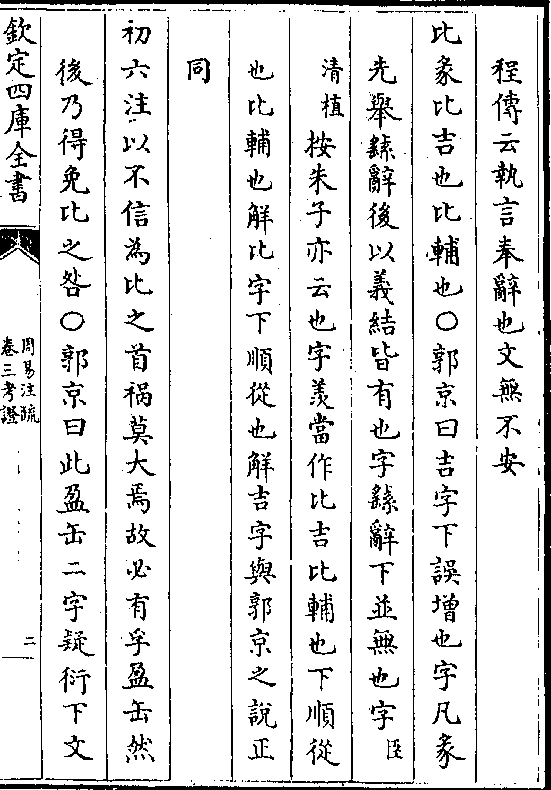 程傳云執言奉辭也文無不安
比彖比吉也比輔也○郭京曰吉字下誤增也字凡彖
先舉繇辭後以義結皆有也字繇辭下並無也字臣
清植按朱子亦云也字羨當作比吉比輔也下順從
也比輔也解比字下順從也解吉字與郭京之說正
同
初六注以不信為比之首禍莫大焉故必有孚盈缶然
後乃得免比之咎○郭京曰此盈缶二字疑衍下文
欽定四庫全書
周易注疏
卷三考證
二